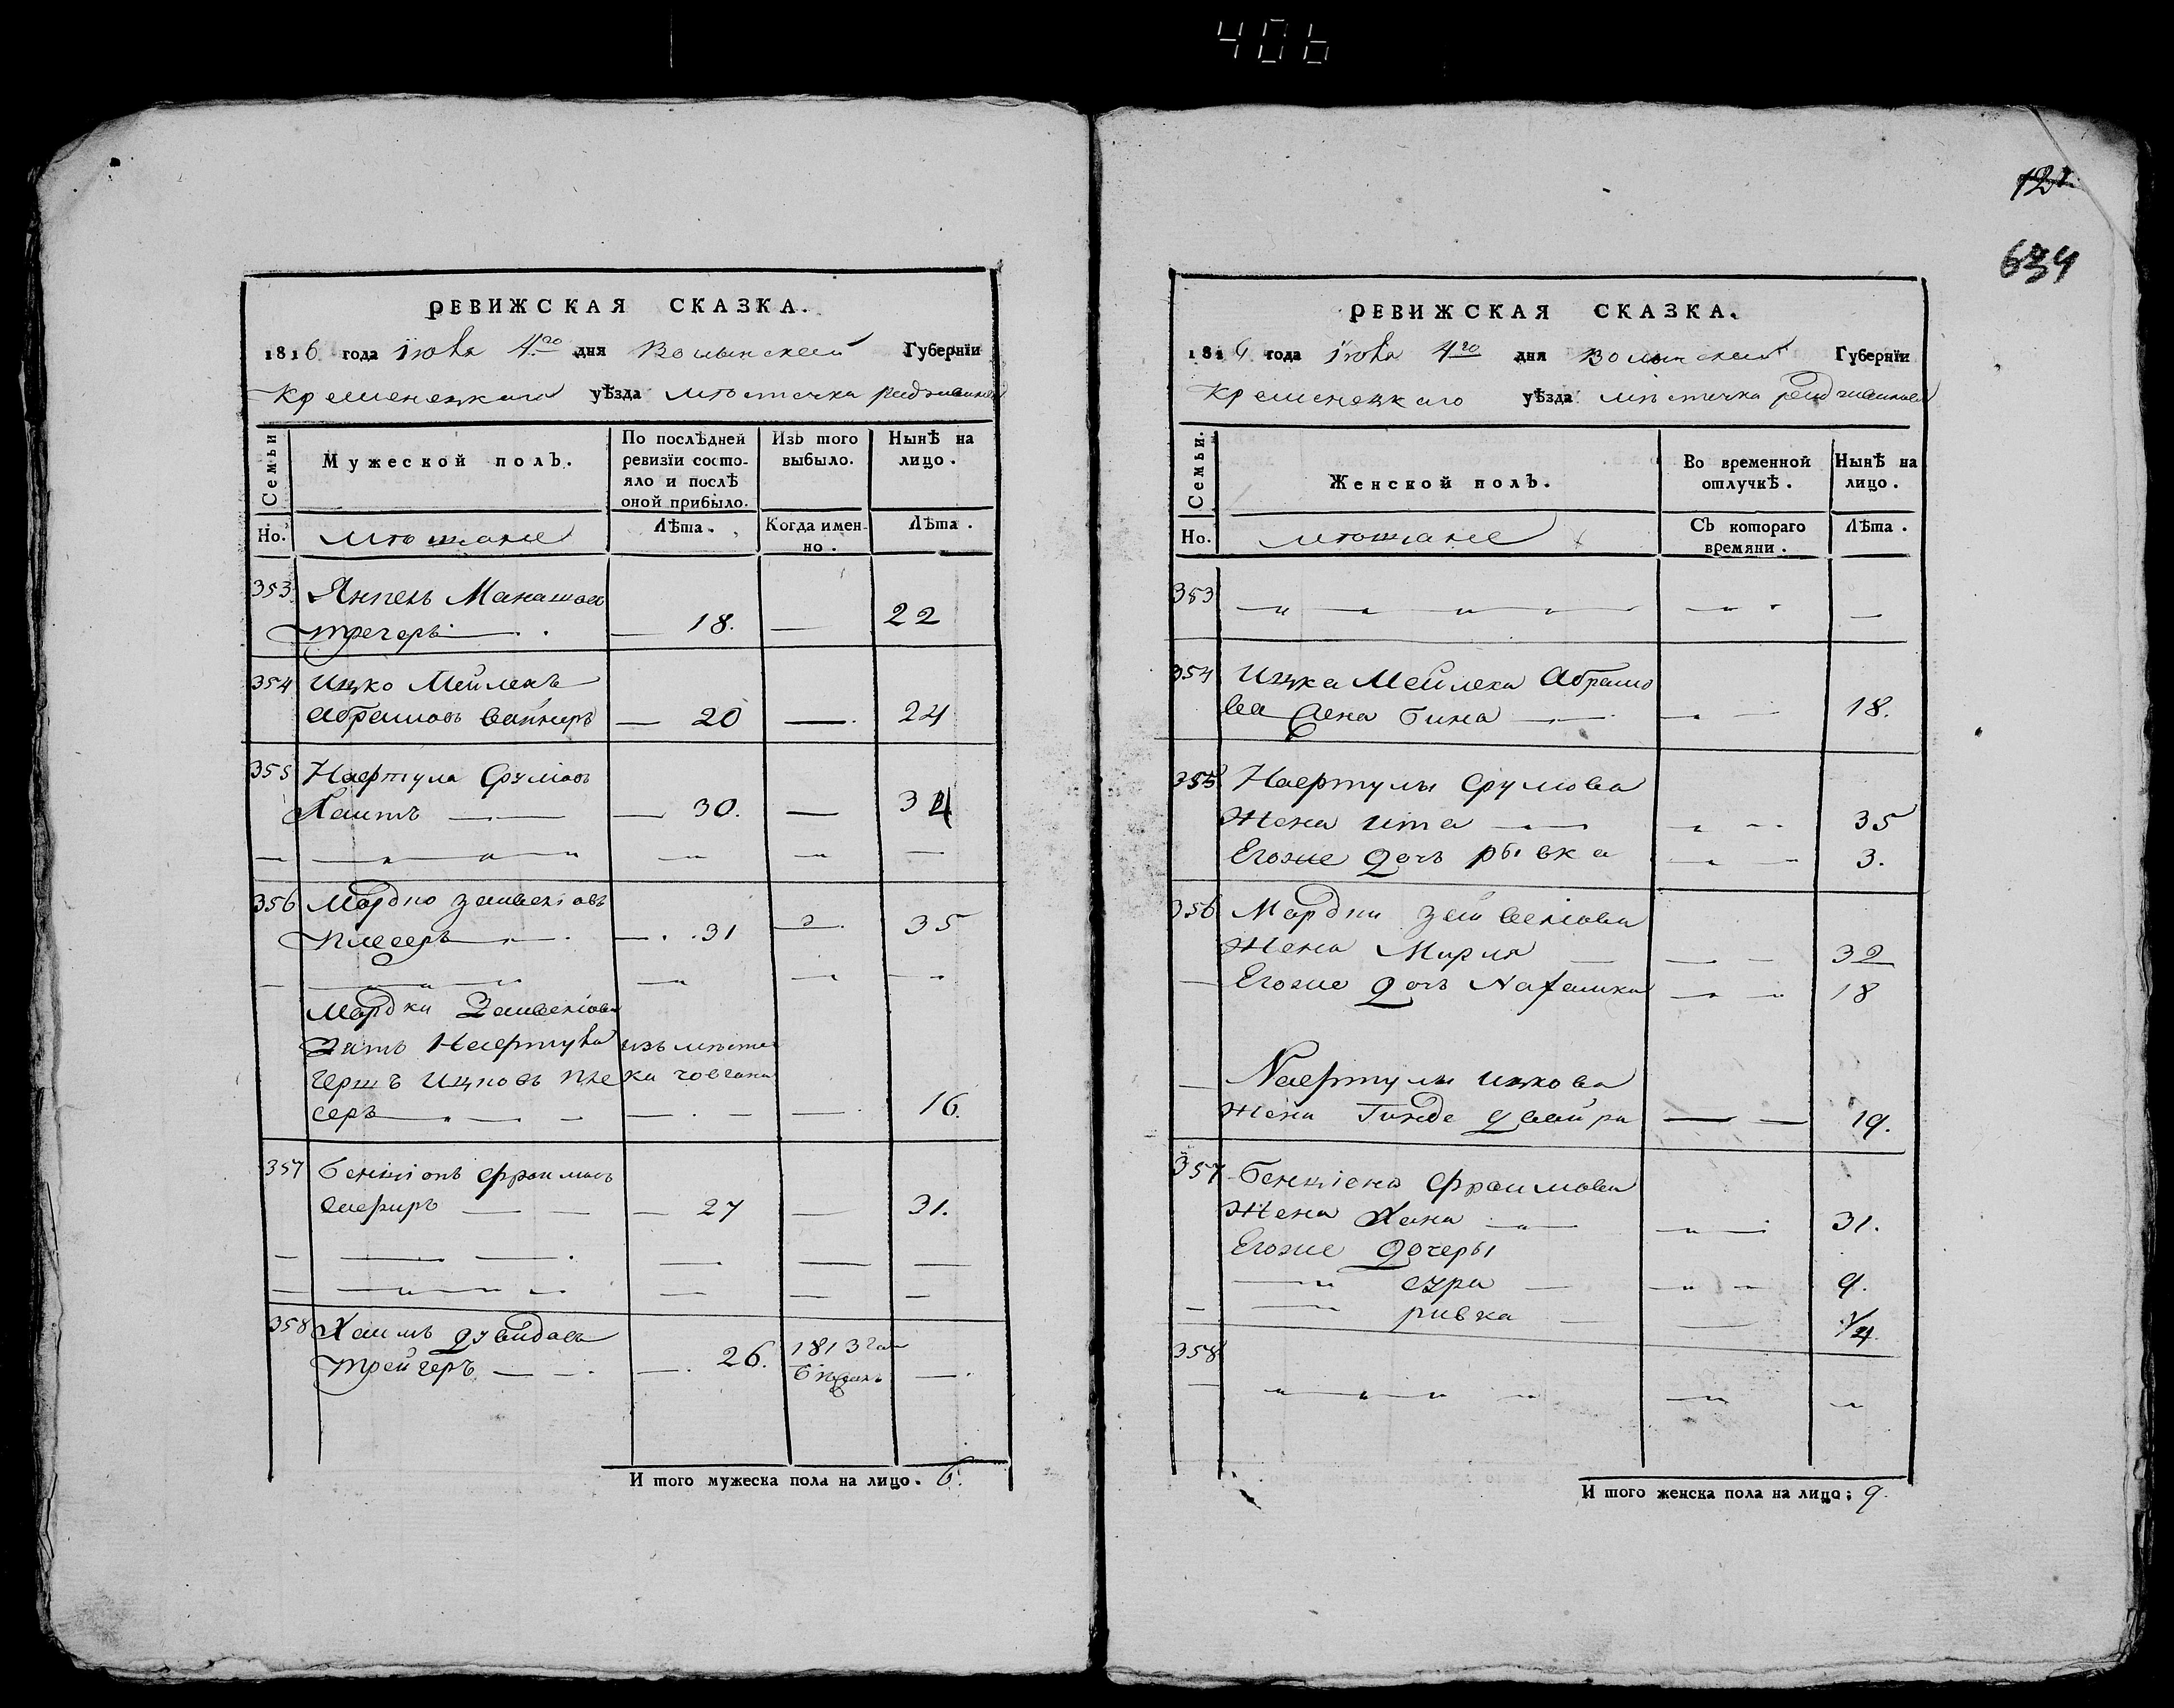 406
РЕВИЖСКАЯ СКАЗКА.
1816 года іюня 4го дня Волынской Губернїи
Кременецкаго уѣзда мѣстечка радзивилова
Семьи
Мужеской полъ.
По послѣдней ревизїи состо-
яло и послѣ
оной прибыло.
Изъ того
выбыло.
Нынѣ на
лицо.
Но.
мѣщане
Лѣта.
Когда имен-
но.
Лѣта.
353 Янкель Манашов
трегеръ 18. 22
354 Ицко Мейлехъ
Абрамовъ вайнеръ 20 24
355 Нафтула Срулiовъ
Хаитъ 30. 34
356 Мордко Зейвелiовъ
плесеръ 31 35
Мордки Зейвелiова
Зять Нафтула изъ мѣсте
гершъ Ицковъ пле ка
серъ 16.
357 Бенцiонъ Фроимовъ
сафиръ 27 31.
358 Хаимъ Дувидовъ
трейгеръ 26. 1813 го
И того мужеска пола на лицо. 6.
634
РЕВИЖСКАЯ СКАЗКА.
1816 года іюня 4го дня волынской Губернїи
Кременецкаго уѣзда мѣстечка радзивилова
Семьи.
Женской полъ.
Во временной
отлучкѣ.
Нынѣ на
лицо.
Но.
мѣщане
Съ котораго
времяни.
Лѣта.
353
354 Ицка Мейлеха Абрамо
ва Жена бина 18.
355 Нафтулы Срулiова
Жена ита 35
Егоже Дочь рывка 3.
356 Мордки Зейвелiова
Жена Мирля 32
Егоже Дочь 18
Нафтулы ицкова
жена Гинде Двойра 19.
357 Бенцiона Фроимова
Жена Хана 31.
Егоже Дочеры
езра 9.
ривка 1/4
358
И того женска пола на лицо; 9.